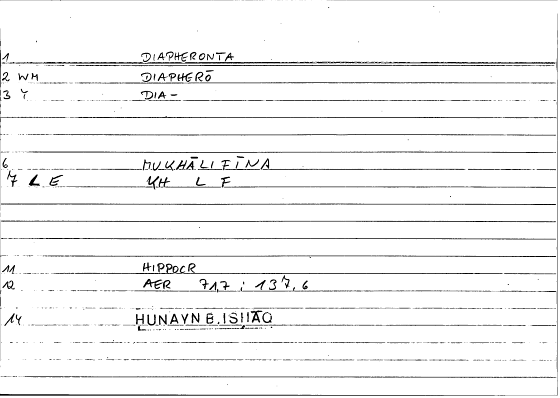 1 DIAPHERONTA
2 WM DIAPHERŌ
3 Y DIA-
6 MUKHĀLIFĪNA
7 L E KH L F
11 HIPPOCR
12 AER 71,7 ; 137,6
14 ḤUNAYN B. ISḤĀQ